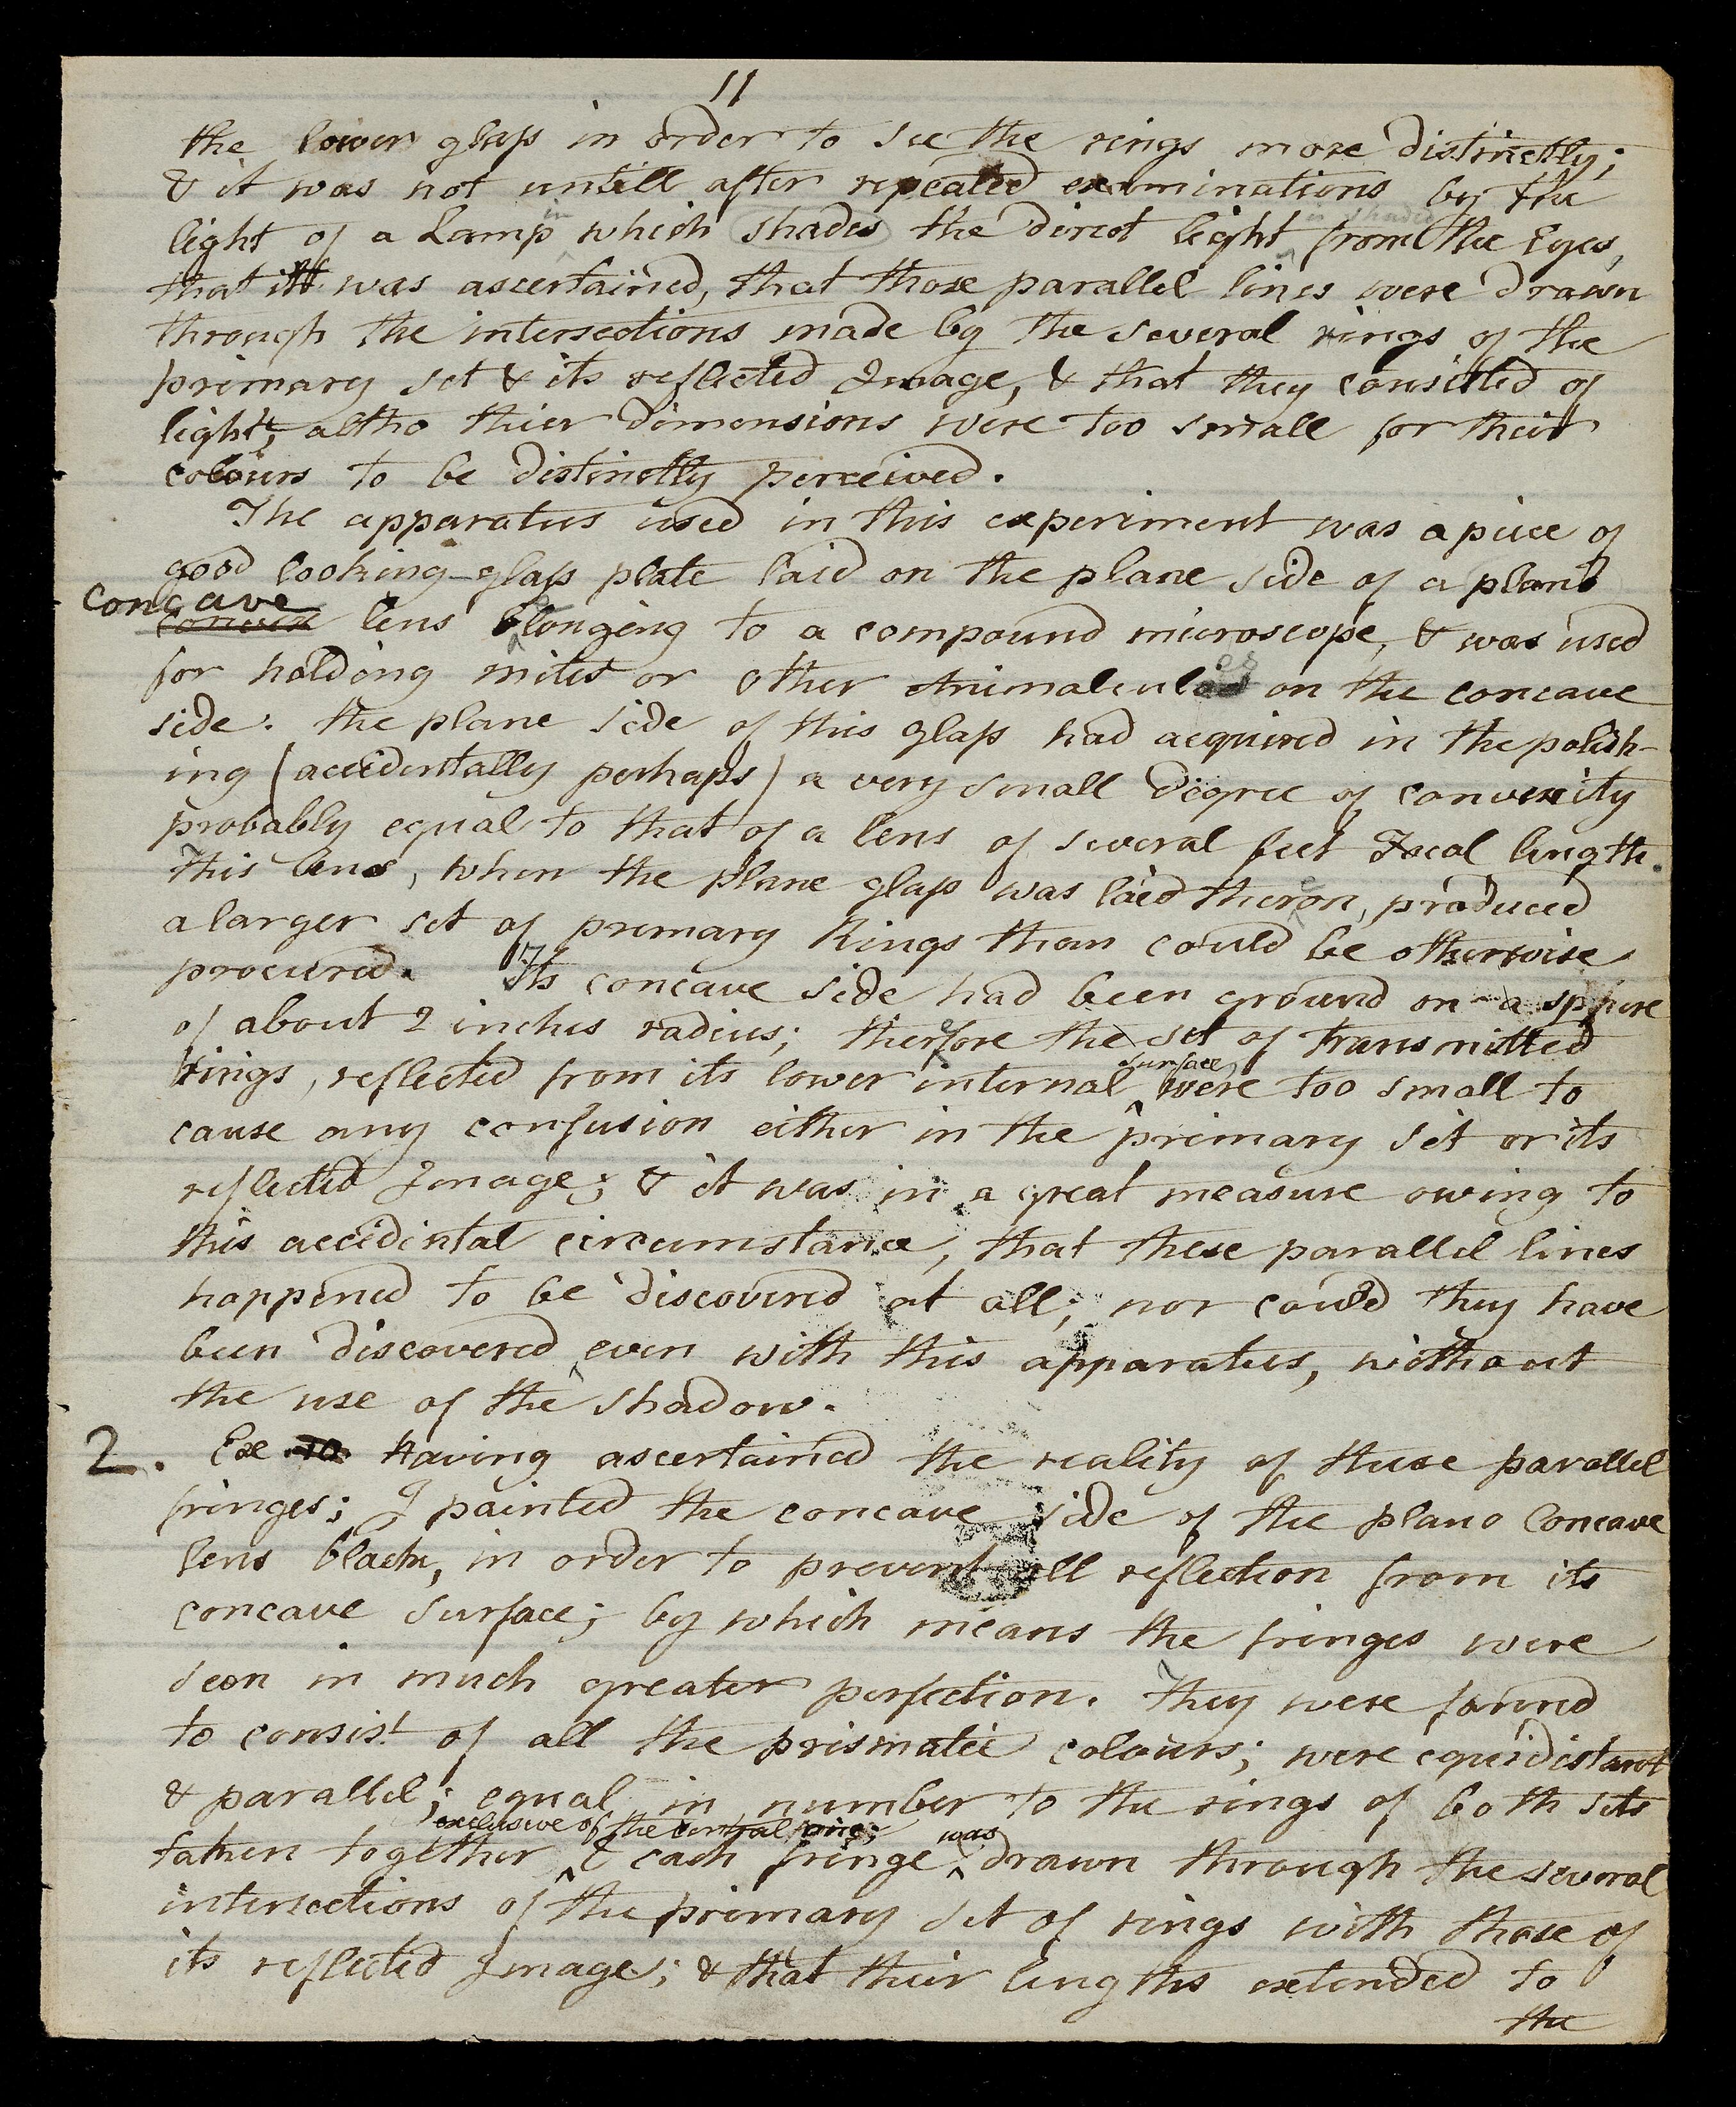 11
the lower glass in order to see the rings more distinctly;
& it was not untill after repeated examinations by the
in is shaded
light of a Lamp which shades the direct light from the Eyes,
that it was ascertained, that those parallel lines were drawn
through the intersections made by the several rings of the
primary set & its reflected Image, & that they consisted of
light, altho thier dimensions were too small for their
colours to be distinctly perceived.
The apparatus used in this experiment was a piece of
good looking-glass plate laid on the plane side of a plano
concave
convex lens belonging to a compound microscope, & was used
for holding mites or other Animalcules on the concave
side. the plane side of this glass had acquired in the polish-
ing (accidentally perhaps) a very small degree of convexity
probably equal to that of a lens of several feet Focal length.
This lens, when the plane glass was laid theron, produced
a larger set of primary Rings than could be otherwise
procured. Its concave side had been ground on a sphere
of about 2 inches radius; therefore the set of transmitted
surface,
rings, reflected from its lower internal were too small to
cause any confusion either in the primary set or its
reflected Image; & it was in a great measure owing to
this accidental circumstance, that these parallel lines
happened to be discovered at all; nor could they have
been discovered even with this apparatus, without
the use of the shadow.
2. Ex Having ascertained the reality of these parallel
fringes; I painted the concave side of the plano Concave
lens black, in order to prevent all reflection from its
concave surface; by which means the fringes were
seen in much greater perfection. They were found
to consist of all the prismatic colours; were equidistant
& parallel; equal in number to the rings of both sets
exclusive of the central one; was
taken together & each fringe drawn through the several
intersections of the primary set of rings with those of
its reflected Image; & that their lengths extended to
the